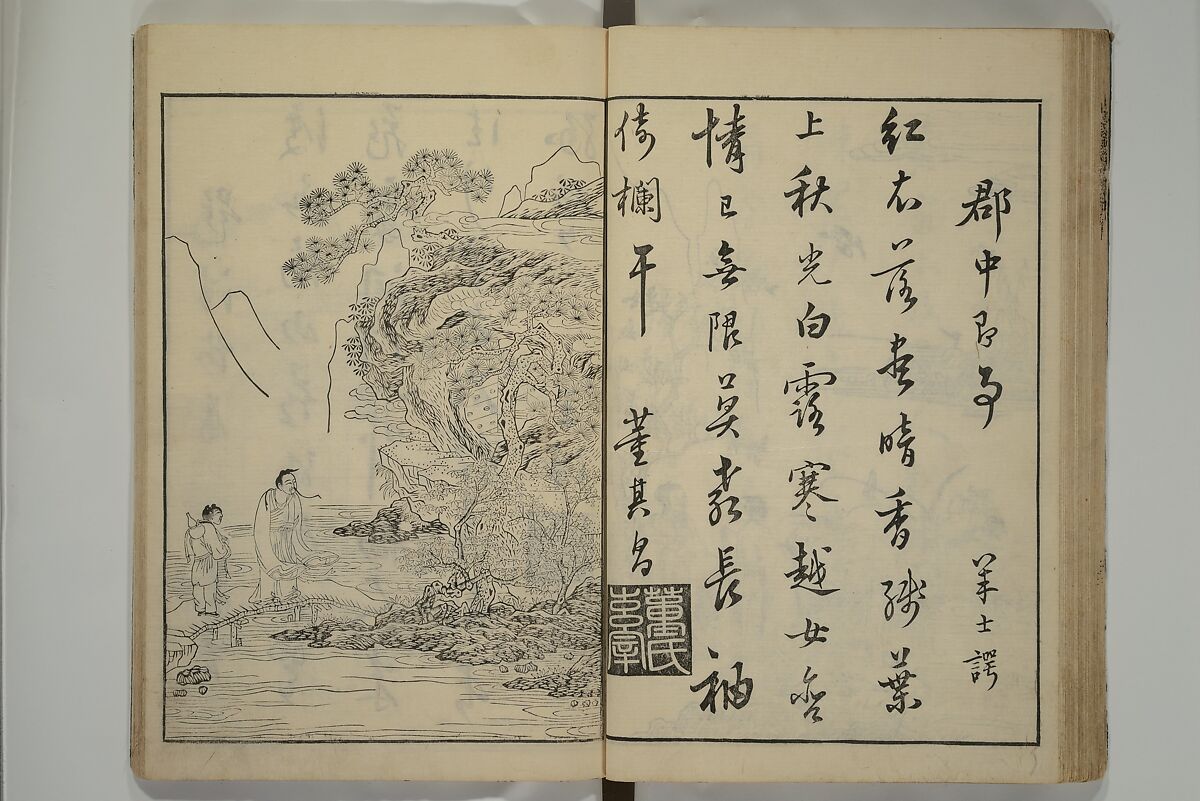 郡中即事 羊士諤
紅衣落盡暗香殘葉
上秋光白露寒越女含
情已無限莫教長袖
倚欄干 董其昌
董氏
玄宰